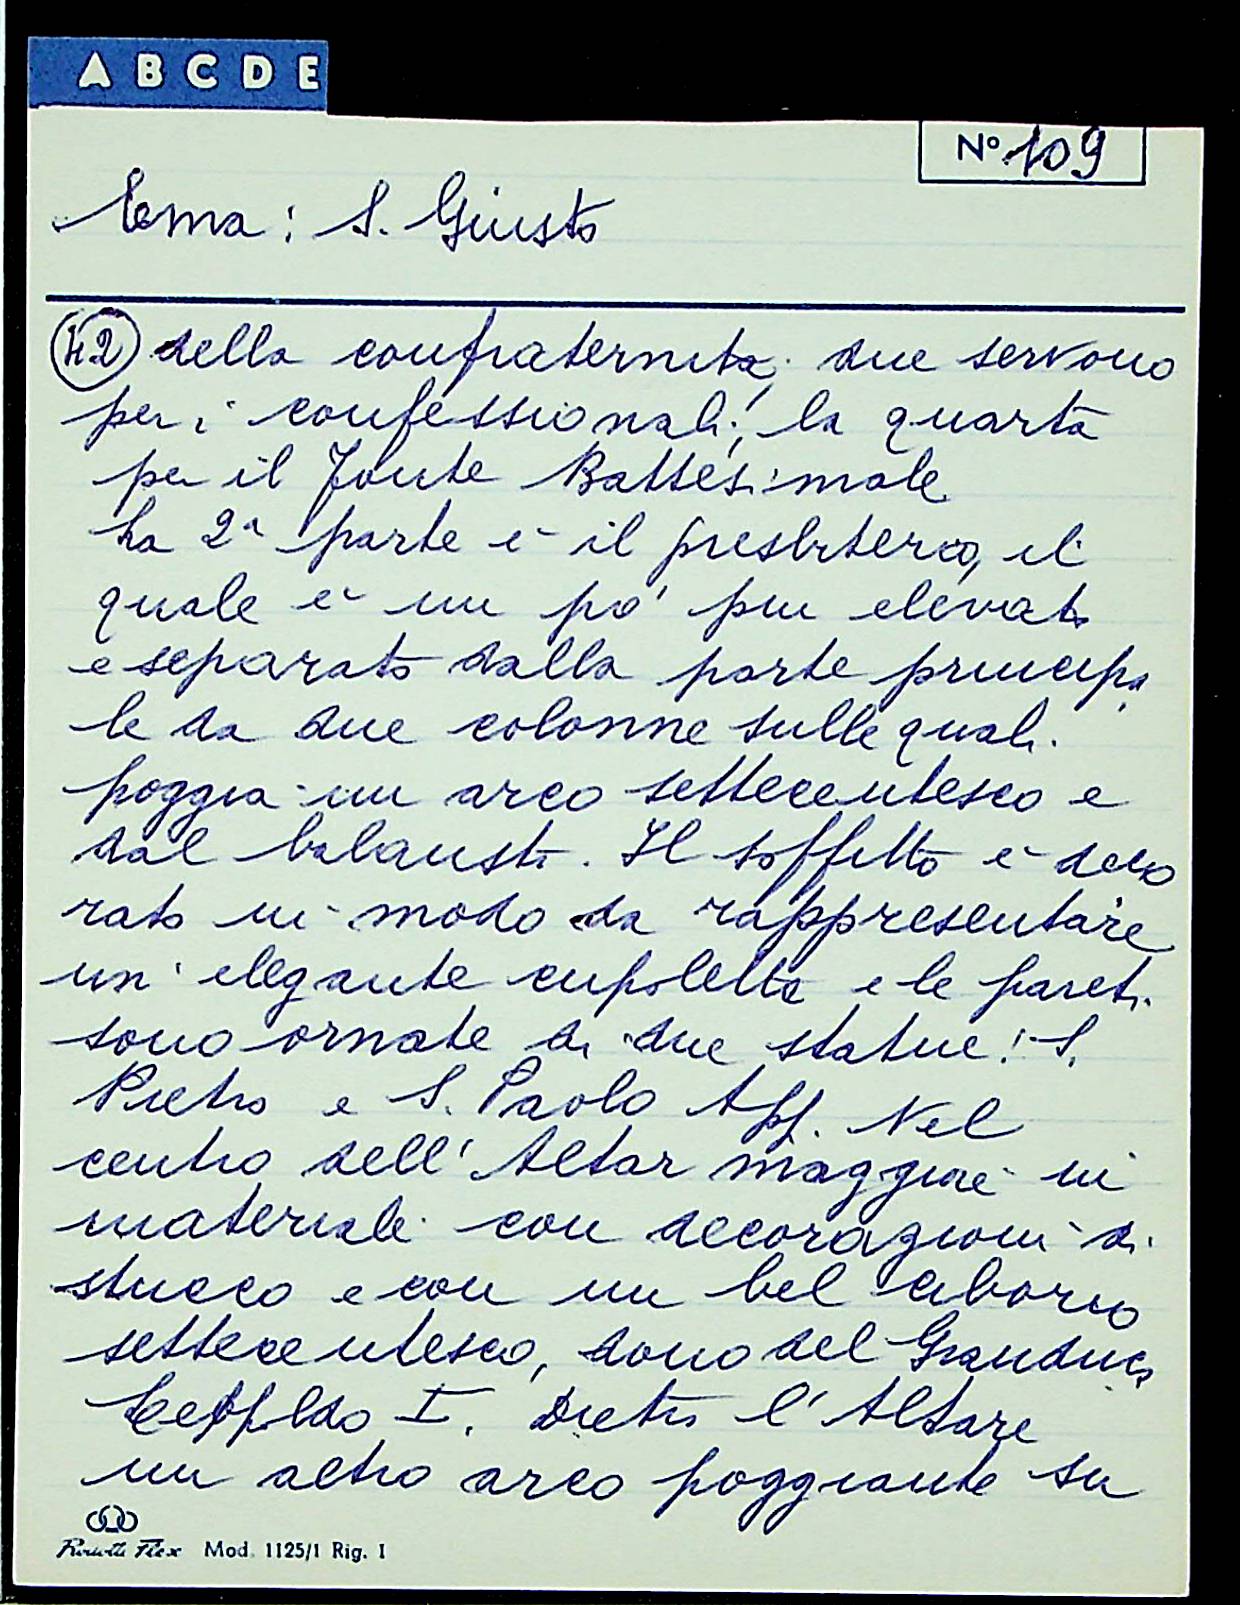 A B C D E
N° 109
Tema: S. Giusto
42 della confraternita; due servono
per i confessionali; la quarta
per il Fonte Battesimale
La 2ª parte è il presbiterio, il
quale è un pò più elevato
e separato dalla parte principa
le da due colonne sulle quali
poggia un arco settecentesco e
dal balaustro. Il soffitto è deco
rato in modo da rappresentare
un' elegante cupoletta e le pareti
sono ornate di due statue: S.
Pietro e S. Paolo App. Nel
centro dell' Altar maggiore in
materiale con decorazioni di
stucco e con un bel ciborio
settecentesco, dono del Granduca
Leopoldo I. Dietro l' Altare
un altro arco poggiante su
Flex Mod. 1125/1 Rig. I